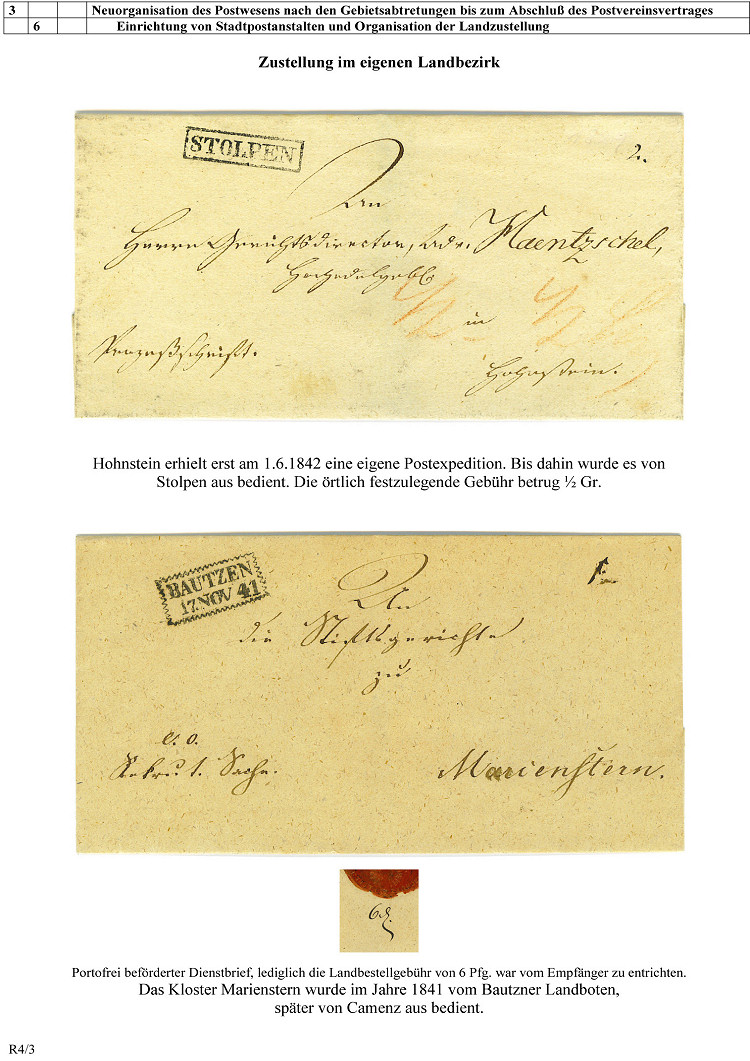 3 Neuorganisation des Postwesens nach den Gebietsabtretungen bis zum Abschluß des Postvereinsvertrages
6 Einrichtung von Stadtpostanstalten und Organisation der Landzustellung
Zustellung im eigenen Landbezirk
STOLPEN
2.
An
Herrn Gerichtsdirector, Adv. Haentzschel,
Hochedelgeb.
½ in ½
Prozeßschrift.
Hohnstein.
Hohnstein erhielt erst am 1.6.1842 eine eigene Postexpedition. Bis dahin wurde es von
Stolpen aus bedient. Die örtlich festzulegende Gebühr betrug ½ Gr.
BAUTZEN
17.NOV 41
An
die Stiftsgerichte
zu
Rekrut. Sache.
Marienstern.
6
Portofrei beförderter Dienstbrief, lediglich die Landbestellgebühr von 6 Pfg. war vom Empfänger zu entrichten.
Das Kloster Marienstern wurde im Jahre 1841 vom Bautzner Landboten,
später von Camenz aus bedient.
R4/3